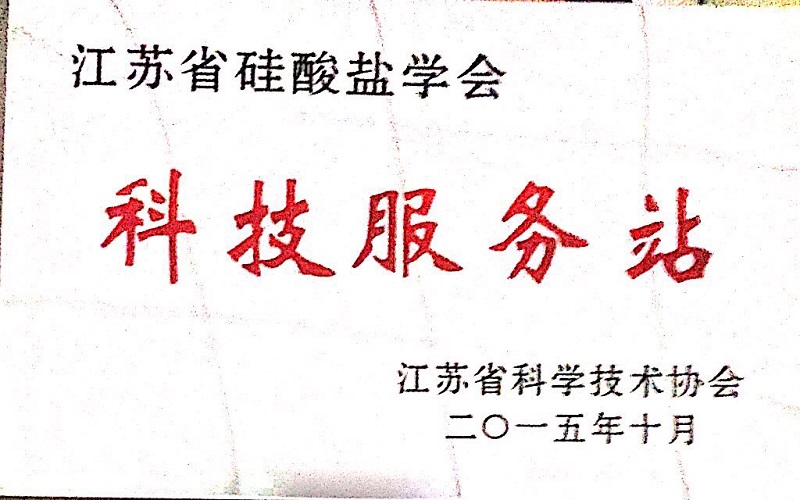 江苏省硅酸盐学会
科技服务站
江苏省科学技术协会
二〇一五年十月